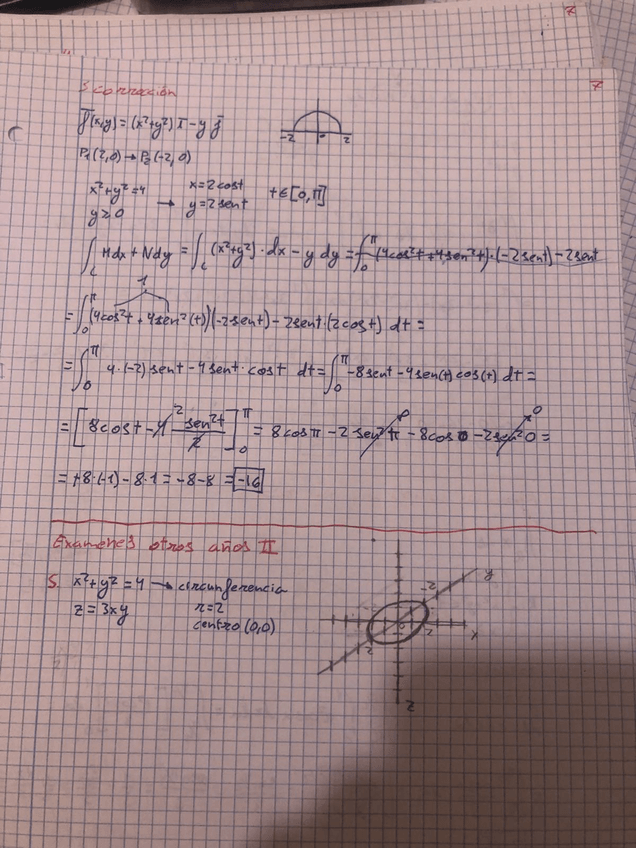 7
7
3 corrección
f̄(x,y) = (x²+y²) ī - y j̄
-2 2
P₁(2,0) → P₂(-2,0)
x²+y²=4 → x=2cost t∈[0,π]
y≥0 y=2sent
∫_L Mdx + Ndy = ∫_L (x²+y²)·dx - y dy = ∫₀^π (4cos²t + 4sen²t)·(-2sent) - 2sent
1
= ∫₀^π (4cos²t + 4sen²(t))(-2sent) - 2sent·(2cost) dt =
= ∫₀^π 4·(-2)sent - 4sent·cost dt = ∫₀^π -8sent - 4sen(t)cos(t) dt =
= [8cost - 4 2 sen²t/2]₀^π = 8cosπ - 2sen²π 0 - 8cos0 - 2sen²0 0 =
= +8·(-1) - 8·1 = -8-8 = -16
Exámenes otros años II
5. x²+y²=4 → circunferencia
z=3xy r=2
centro (0,0)
y
-2
2
x
2
z